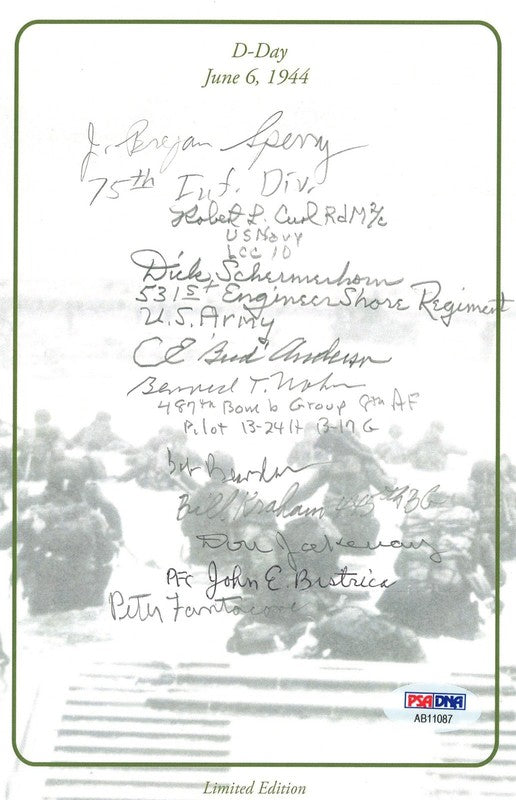 D-Day
June 6, 1944
J. Bregan Sperry
75th Inf. Div.
Robert L. Curl RdM 2/c
US Navy
LCC 10
Dick Schermerhorn
531st Engineer Shore Regiment
U.S. Army
C E "Bud" Anderson
Bernard T. Nolan
487th Bomb Group 8th AF
Pilot B-24H B-17G
Bob
Bill Kraham 445th BG
Don Jakeway
PFC John E. Bistrica
Peter Fantacone
PSA DNA
AB11087
Limited Edition